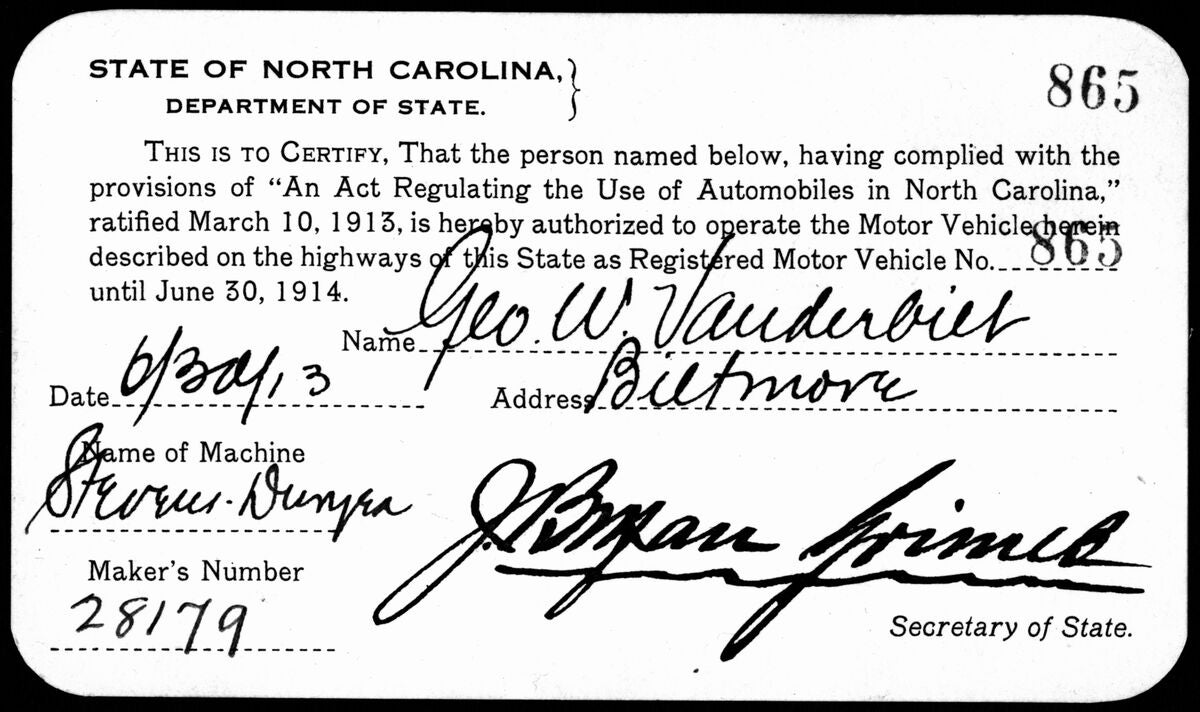 STATE OF NORTH CAROLINA,
DEPARTMENT OF STATE.
865
THIS IS TO CERTIFY, That the person named below, having complied with the
provisions of “An Act Regulating the Use of Automobiles in North Carolina,”
ratified March 10, 1913, is hereby authorized to operate the Motor Vehicle herein
described on the highways of this State as Registered Motor Vehicle No. 865
until June 30, 1914.
Name Geo. W. Vanderbilt
Date 6/30/13
Address Biltmore
Name of Machine
Stevens-Duryea
J. Bryan Grimes
Maker's Number
28179
Secretary of State.